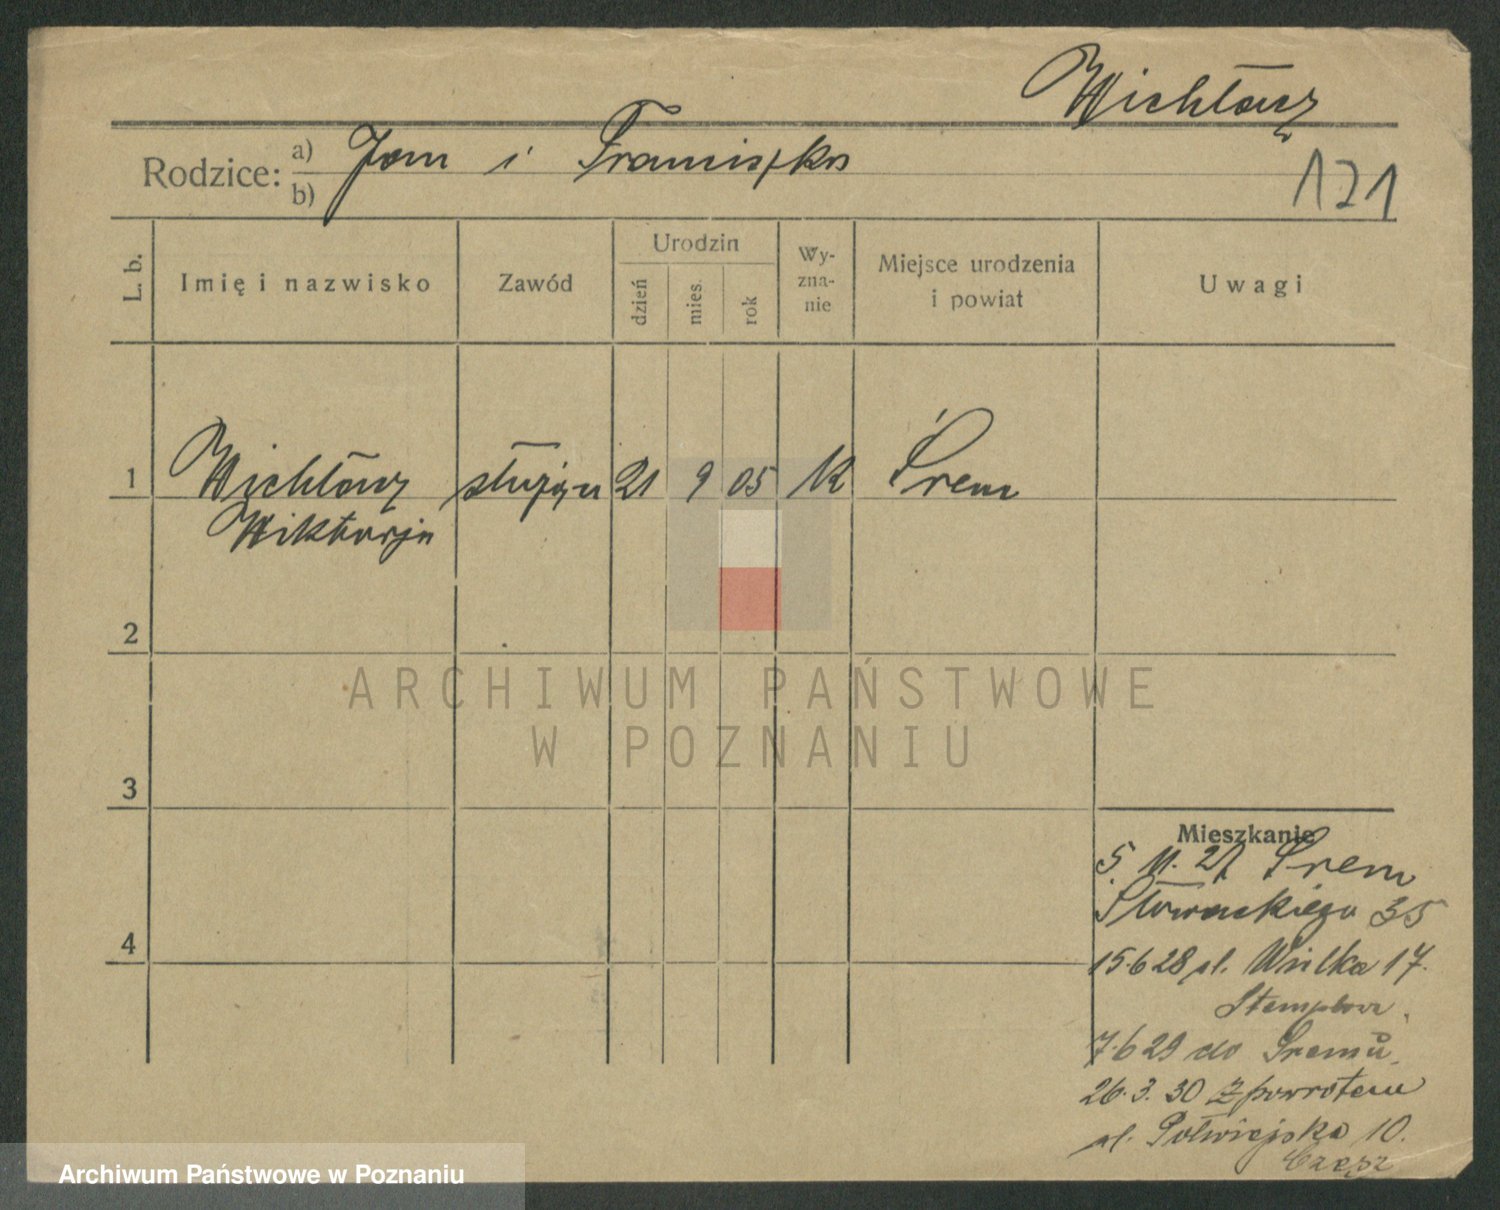 Wichłacz
Rodzice: a) Jan i Franciszka
b)
121
L. b.
Imię i nazwisko
Zawód
Urodzin
dzień
mies.
rok
Wy-
zna-
nie
Miejsce urodzenia
i powiat
Uwagi
1 Wichłacz służąca 21 9 05 K Śrem
Wiktorja
2
3
4
Mieszkanie
5. 11. 27 Śrem
Słowackiego 35
15.6 28 ul. Wielka 17.
7.6 29 do Śremu
26.3.30 z powrotem
ul. Półwiejska 10.
ARCHIWUM PAŃSTWOWE
W POZNANIU
Archiwum Państwowe w Poznaniu